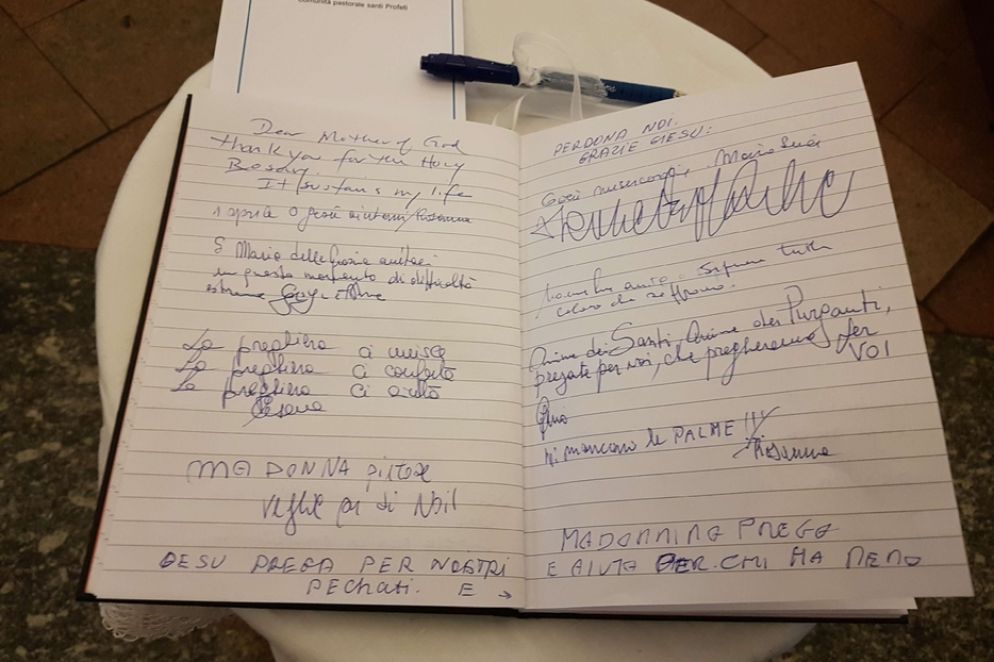 Comunità pastorale santi Profeti
Dear Mother of God
thank you for the Holy
Rosary.
It sustains my life
1 aprile O Gesù aiutami Rosanna
S Maria delle Grazie aiutaci
in questo momento di difficoltà
estrema
La preghiera ci unisce
La preghiera ci conforta
La preghiera ci aiuta
Cesana
MADONNA
di Noi!
GESU PREGA PER NOSTRI
PECHati. E →
PERDONA NOI.
GRAZIE GIESU:
Gesù misericordia, Maria
coloro che soffrono.
Anime dei Santi, Anime dei Purganti,
pregate per noi, che pregheremo per
VOI
Mi mancano le PALME !!!
Rosanna
MADONNINA PREGA
E AIUTA PER. CHI HA MENO